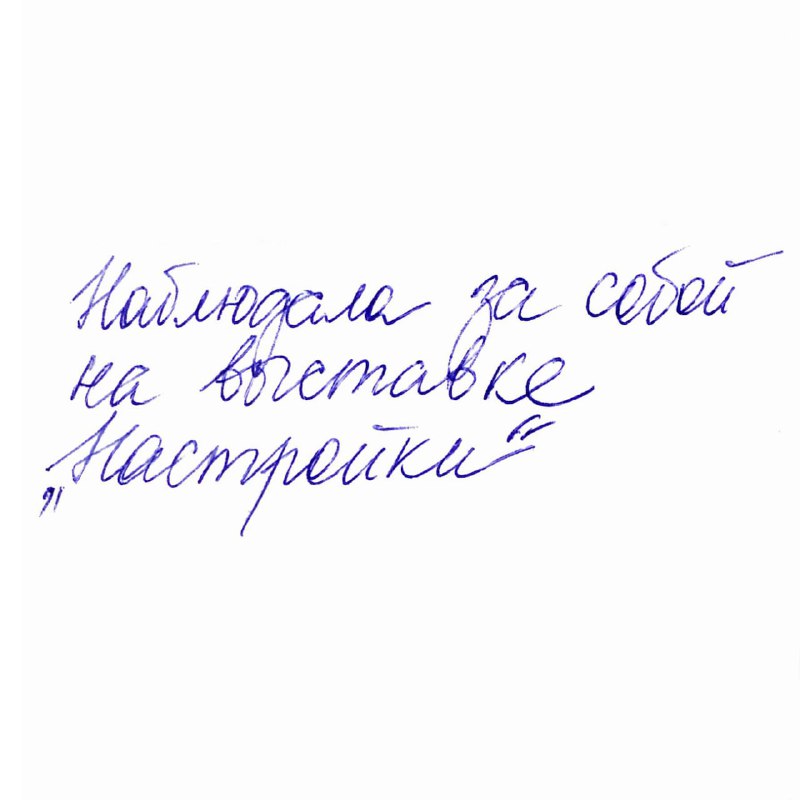 Наблюдала за собой
на выставке
„Настройки“